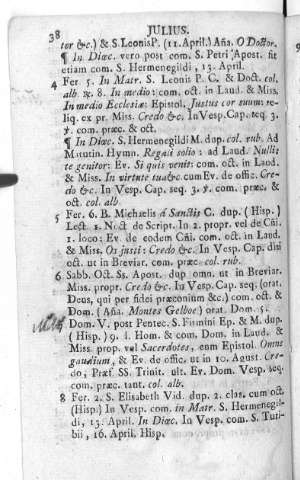 38 JULIUS.
tor &c.) & S. Leonis P. (11. April.) Aña. O Doctor.
¶ In Diœc. vero post com. S. Petri Apost. fit
etiam com. S. Hermenegildi, 13. April.
4 Fer. 5. In Matr. S. Leonis P. C. & Doct. col.
alb. & 8. In medio: com. oct. in Laud. & Miss.
In medio Ecclesiæ: Epistol. Justus cor suum: re-
liq. ex pr. Miss. Credo &c. In Vesp. Cap. seq. 3.
℣. com. præc. & oct.
¶ In Diœc. S. Hermenegildi M. dup. col. rub. Ad
Matutin. Hymn. Regali solio: ad Laud. Nullit
te genitor: Ev. Si quis venit: com. oct. in Laud.
& Miss. In virtute tua &c. cum Ev. de offic. Cre-
do &c. In Vesp. Cap. seq. 3. ℣. com. præc. &
oct. col. alb.
5 Fer. 6. B. Michælis á Sanctis C. dup. (Hisp.)
Lect. 1. Noct. de Script. In 2. propr. vel de Cñi.
1. loco: Ev. de eodem Cñi. com. oct. in Laud.
& Miss. Os justi: Credo &c. In Vesp. Cap. diei
oct. ut in Breviar. com. præc. col. rub.
6 Sabb. Oct. Ss. Apost. dup. omn. ut in Breviar.
Miss. propr. Credo &c. In Vesp. Cap. seq. (orat.
Deus, qui per fidei præconium &c.) com. oct. &
Dom. (Aña. Montes Gelboe) orat. Dom. 5.
Dom. V. post Pentec. S. Firmini Ep. & M. dup.
(Hisp.) 9. l. Hom. & com. Dom. in Laud. &
Miss. prop. vel Sacerdotes, cum Epistol. Omne
gaudium, & Ev. de offic. ut in 10. Agust. Cre-
do, Præf. SS. Trinit. ult. Ev. Dom. Vesp. seq.
com. præc. tant. col. alb.
8 Fer. 2. S. Elisabeth Vid. dup. 2. clas. cum oct.
(Hisp.) In Vesp. com. in Matr. S. Hermenegil-
di, 13. April. In Diœc. In Vesp. com. S. Turi-
bii, 16. April. Hisp.